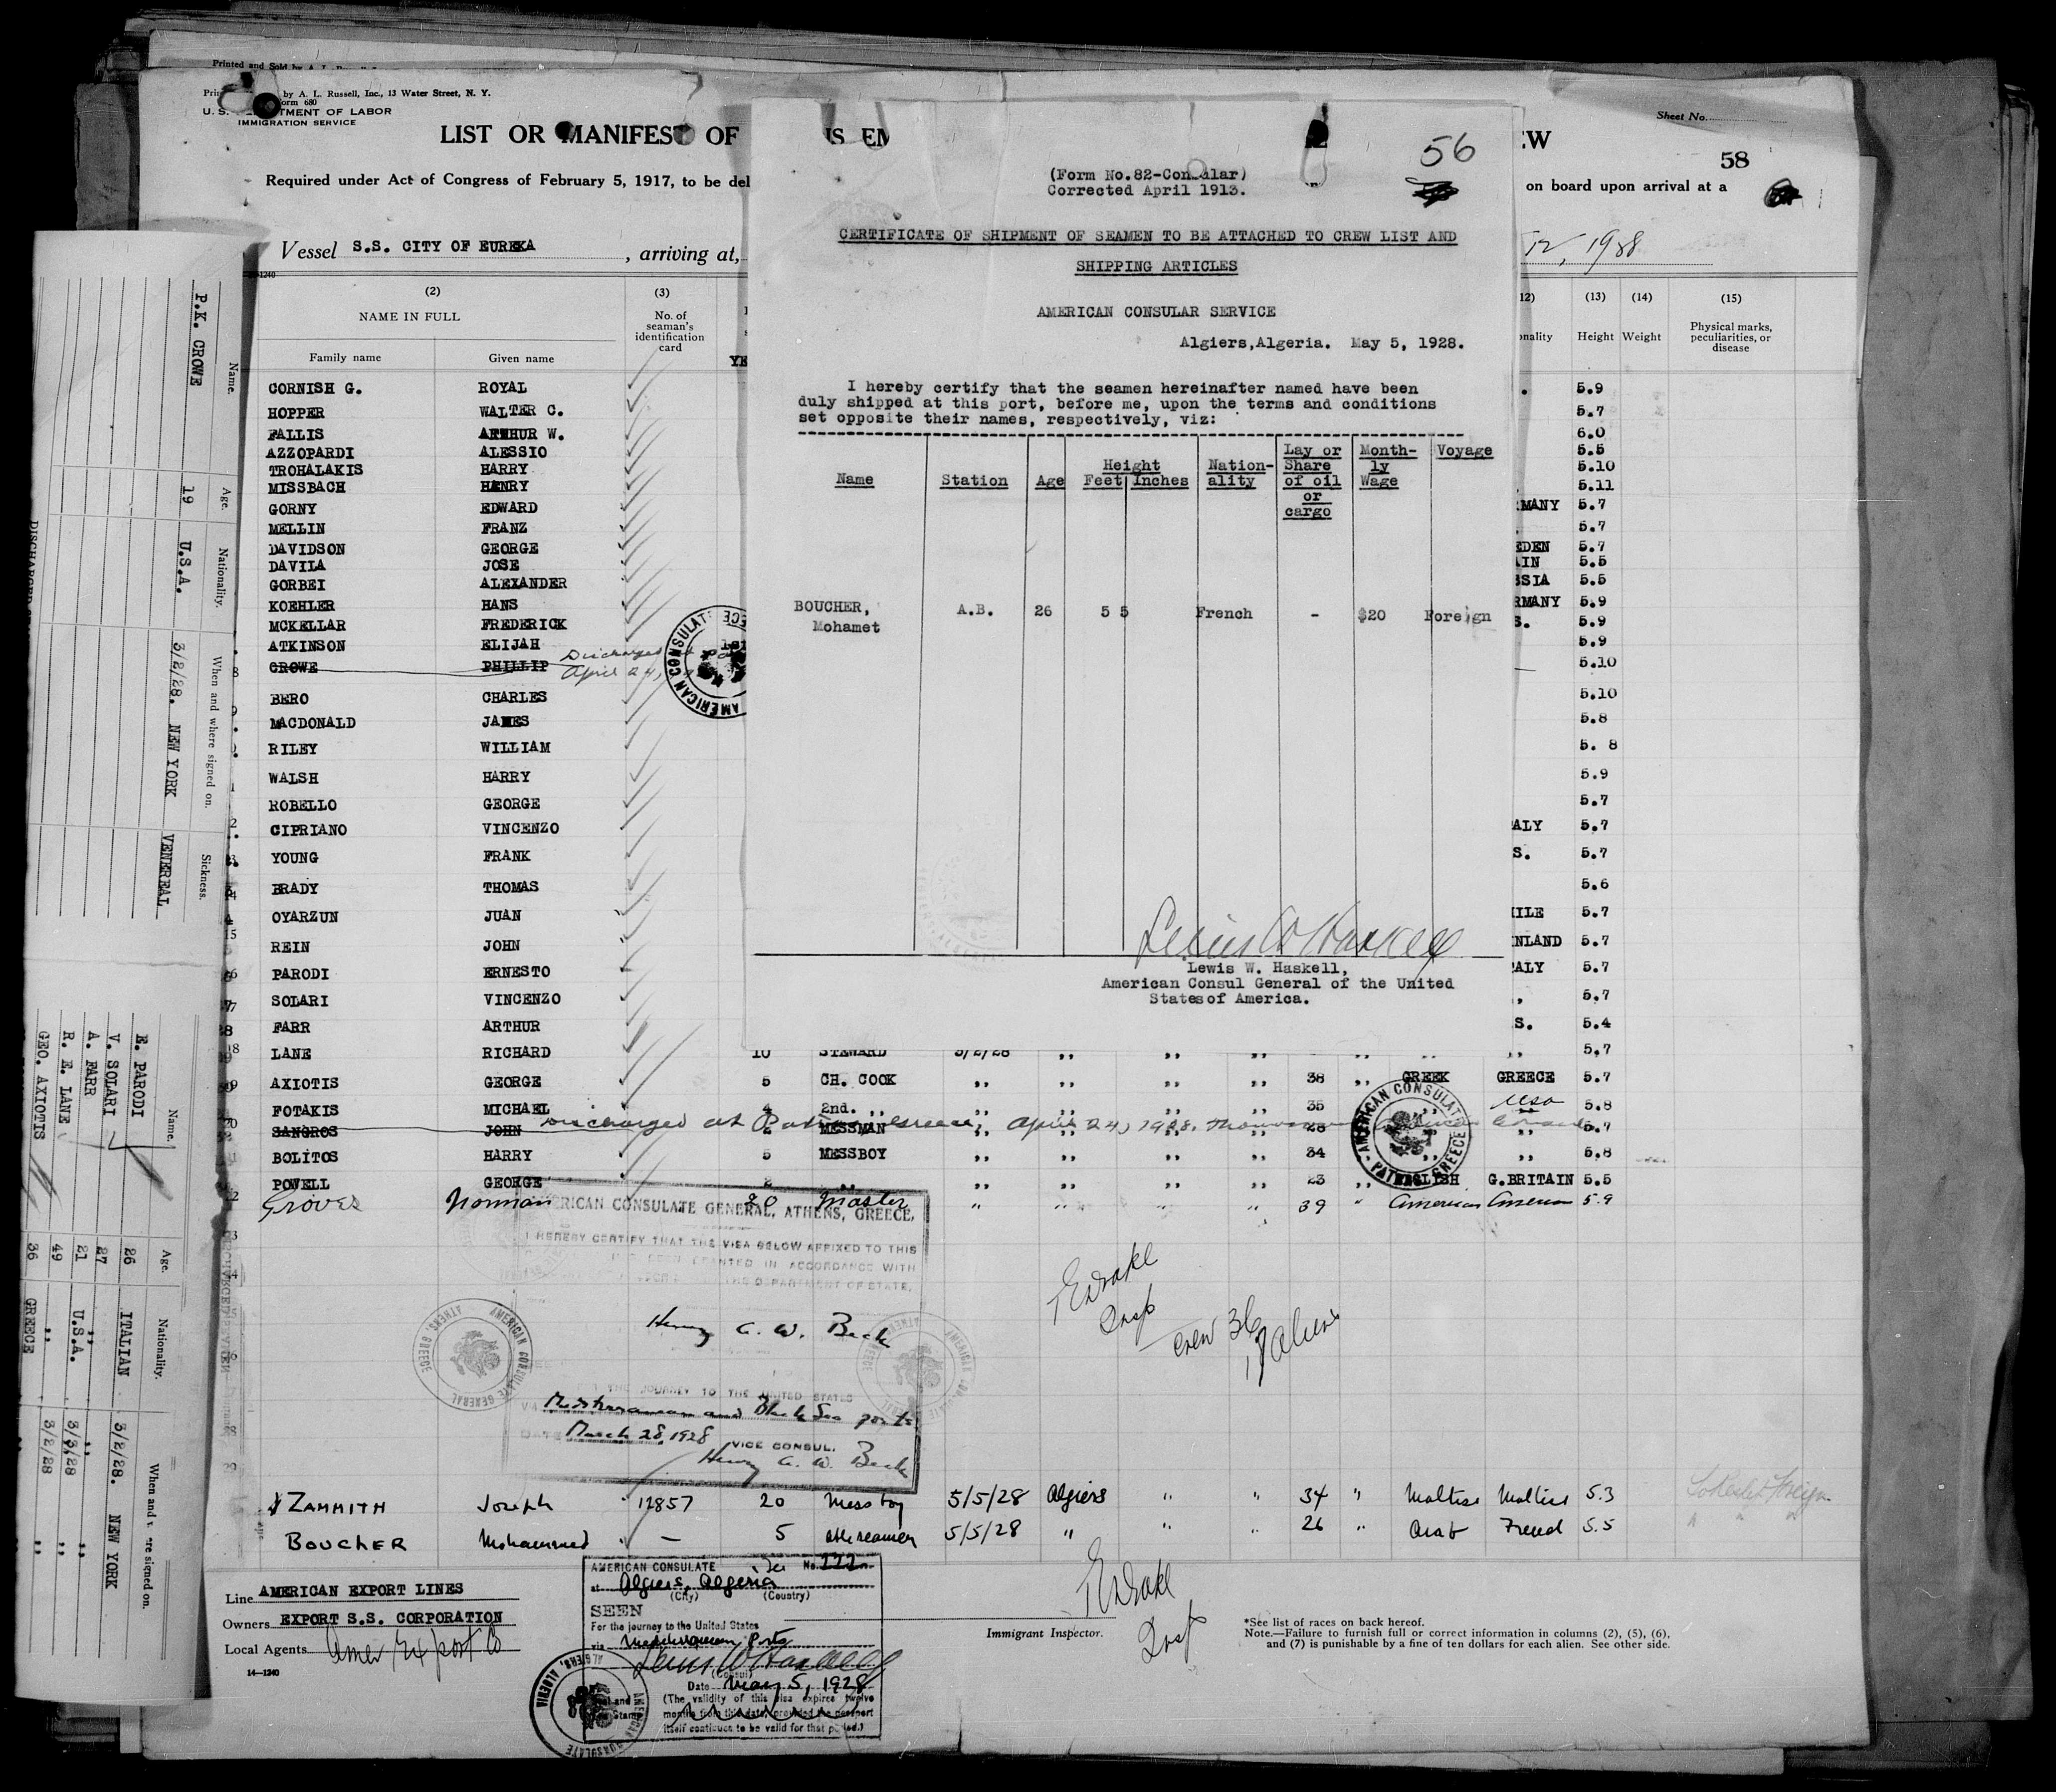 Printed and Sold by A. L.
by A. L. Russell, Inc., 13 Water Street, N. Y.
Form 680
U. S. DEPARTMENT OF LABOR
IMMIGRATION SERVICE
Sheet No.
LIST OR MANIFEST OF
EW
58
Required under Act of Congress of February 5, 1917, to be del
on board upon arrival at a
Vessel S.S. CITY OF EUREKA, arriving at,
12, 1928
(2) (3) 12) (13) (14) (15)
NAME IN FULL
Family name Given name
No. of seaman's identification card
nality Height Weight Physical marks, peculiarities, or disease
CORNISH G. ROYAL 5.9
HOPPER WALTER C. 5.7
FALLIS ARTHUR W. 6.0
AZZOPARDI ALESSIO 5.5
TROHALAKIS HARRY 5.10
MISSBACH HENRY 5.11
GORNY EDWARD RMANY 5.7
MELLIN FRANZ 5.7
DAVIDSON GEORGE EDEN 5.7
DAVILA JOSE AIN 5.5
GORBEI ALEXANDER SSIA 5.5
KOEHLER HANS RMANY 5.9
MCKELLAR FREDERICK S. 5.9
ATKINSON ELIJAH 5.9
CROWE PHILLIP Discharged April 24, 5.10
BERO CHARLES 5.10
MACDONALD JAMES 5.8
RILEY WILLIAM 5. 8
WALSH HARRY 5.9
ROBELLO GEORGE 5.7
CIPRIANO VINCENZO ALY 5.7
YOUNG FRANK S. 5.7
BRADY THOMAS 5.6
OYARZUN JUAN ILE 5.7
REIN JOHN NLAND 5.7
PARODI ERNESTO ALY 5.7
SOLARI VINCENZO , 5.7
FARR ARTHUR S. 5.4
LANE RICHARD 10 STEWARD 3/2/28 ,, ,, ,, ,, ,, ,, 5.7
AXIOTIS GEORGE 5 CH. COOK ,, ,, ,, ,, 38 ,, GREEK GREECE 5.7
FOTAKIS MICHAEL 4 2nd. ,, ,, ,, ,, ,, 35 ,, USA 5.8
SANGROS JOHN MESSMAN ,, ,, ,, ,, 28 ,, 5.7
Discharged at Patras Greece, April 24, 1928.
BOLITOS HARRY 5 MESSBOY ,, ,, ,, ,, 34 ,, ,, 5.8
POVELL GEORGE 2 ,, ,, ,, ,, ,, 23 ,, ENGLISH G.BRITAIN 5.5
Groves Norman 20 Master " " " " 39 " American American 5.9
AMERICAN CONSULATE PATRAS, GREECE
AMERICAN CONSULATE GENERAL, ATHENS, GREECE.
I HEREBY CERTIFY THAT THE VISA BELOW AFFIXED TO THIS
GRANTED IN ACCORDANCE WITH
THE DEPARTMENT OF STATE.
Henry A. W. Beck
AMERICAN CONSULATE GENERAL ATHENS, GREECE
THE JOURNEY TO THE UNITED STATES
VIA Mediterranean and Black Sea ports
March 28, 1928
VICE CONSUL.
Henry A. W. Beck
Drake
Insp
crew 36
aliens
ZAMMITH Joseph 12857 20 Mess boy 5/5/28 Algiers " " 34 " Maltese Maltese 5.3
BOUCHER Mohammed — 5 5/5/28 " " " 26 " Arab French 5.5
AMERICAN CONSULATE No. 222
at Algiers, Algeria
(City) (Country)
SEEN
For the journey to the United States
via Mediterranean Ports
Lewis W Haskell
(Consul)
Date May 5, 1928
(The validity of this visa expires twelve
months from this date, provided the passport
itself continues to be valid for that period.)
Line AMERICAN EXPORT LINES
Owners EXPORT S.S. CORPORATION
Local Agents Amer Export Co
14—1240
Drake
Insp
Immigrant Inspector.
*See list of races on back hereof.
Note.—Failure to furnish full or correct information in columns (2), (5), (6),
and (7) is punishable by a fine of ten dollars for each alien. See other side.
56
(Form No.82-Consular)
Corrected April 1913.
CERTIFICATE OF SHIPMENT OF SEAMEN TO BE ATTACHED TO CREW LIST AND
SHIPPING ARTICLES
AMERICAN CONSULAR SERVICE
Algiers,Algeria. May 5, 1928.
I hereby certify that the seamen hereinafter named have been
duly shipped at this port, before me, upon the terms and conditions
set opposite their names, respectively, viz:
Name Station Age Height Feet Inches Nation-ality Lay or Share of oil or cargo Month-ly Wage Voyage
BOUCHER, A.B. 26 5 5 French - $20 Foreign
Mohamet
Lewis W Haskell
Lewis W. Haskell,
American Consul General of the United
States of America.
Name. Age. Nationality. When and where signed on. Sickness.
P.K. CROWE 19 U.S.A. 3/2/28. NEW YORK VENEREAL
Name. Age. Nationality. When and where signed on.
E. PARODI 26 ITALIAN 3/2/28. NEW YORK
V. SOLARI 27 ,, ,,
A. FARR 21 U.S.A. 3/3/28 ,,
R. E. LANE 49 ,, 3/2/28 ,,
GEO. AXIOTIS 36 GREECE ,,